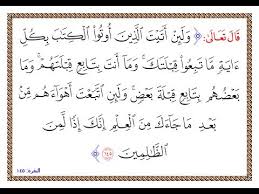 قَالَ تَعَالَى: ﴿ وَلَئِنْ أَتَيْتَ ٱلَّذِينَ أُوتُوا۟ ٱلْكِتَٰبَ بِكُلِّ
ءَايَةٍ مَّا تَبِعُوا۟ قِبْلَتَكَ ۚ وَمَآ أَنتَ بِتَابِعٍ قِبْلَتَهُمْ ۚ وَمَا
بَعْضُهُم بِتَابِعٍ قِبْلَةَ بَعْضٍ ۚ وَلَئِنِ ٱتَّبَعْتَ أَهْوَآءَهُم مِّنۢ
بَعْدِ مَا جَآءَكَ مِنَ ٱلْعِلْمِ ۙ إِنَّكَ إِذًا لَّمِنَ
ٱلظَّٰلِمِينَ ١٤٥ ﴾
البقرة: ١٤٥